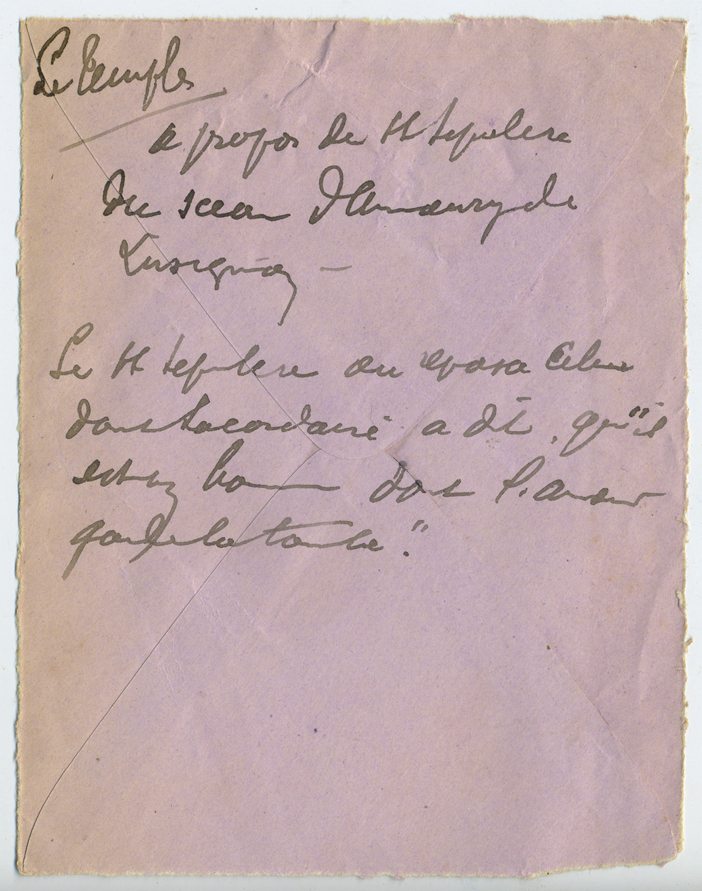 Le Temple
a propos de St Sepulcre
du sceau d'Amaury de
Lusignan —
Le St Sepulcre ou reposa Celui
dont Lacordaire a dit, "qu'il
est un homme dont l'amour
garde la tombe."